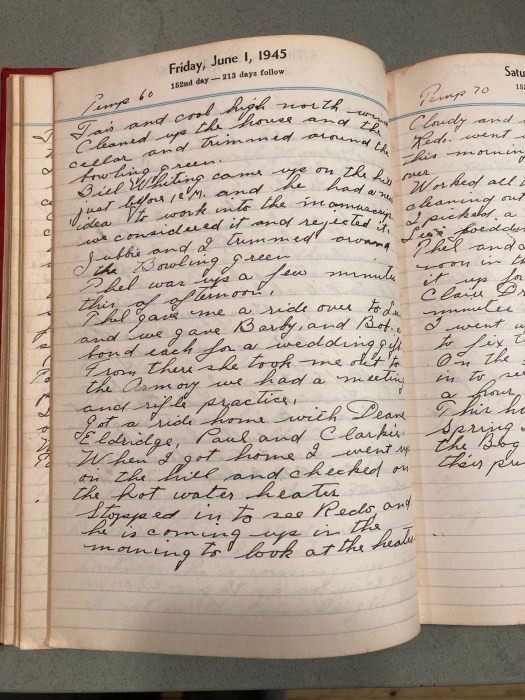 Friday, June 1, 1945
152nd day — 213 days follow
Temp 60
Fair and cool high north wind
Cleaned up the house and the
cellar and trimmed around the
bowling green.
Bill Whiting came up on the hill
just before 12 M. and he had a new
idea to work into the manuscript
we considered it and rejected it.
Jubbie and I trimmed around
the Bowling green
Phel was up a few minutes
this afternoon.
Phel gave me a ride over to
and we gave Barby, and Bob. a
bond each for a wedding gift
From there she took me out to
the Armory we had a meeting
and rifle practice.
Got a ride home with Deane
Eldridge, Paul and Clarkie
When I got home I went up
on the hill and checked on
the hot water heater
Stopped in to see Redo, and
he is coming up in the
morning to look at the heater
Satu
Temp 70
Cloudy and
Redo. went
this morning
over
Worked all
cleaning out
I picked a
Phel and
noon in th
it up for
Claire D
minutes
I went u
to fix t
On the
in to see
a hour
This h
Spring
the Bag
their pu